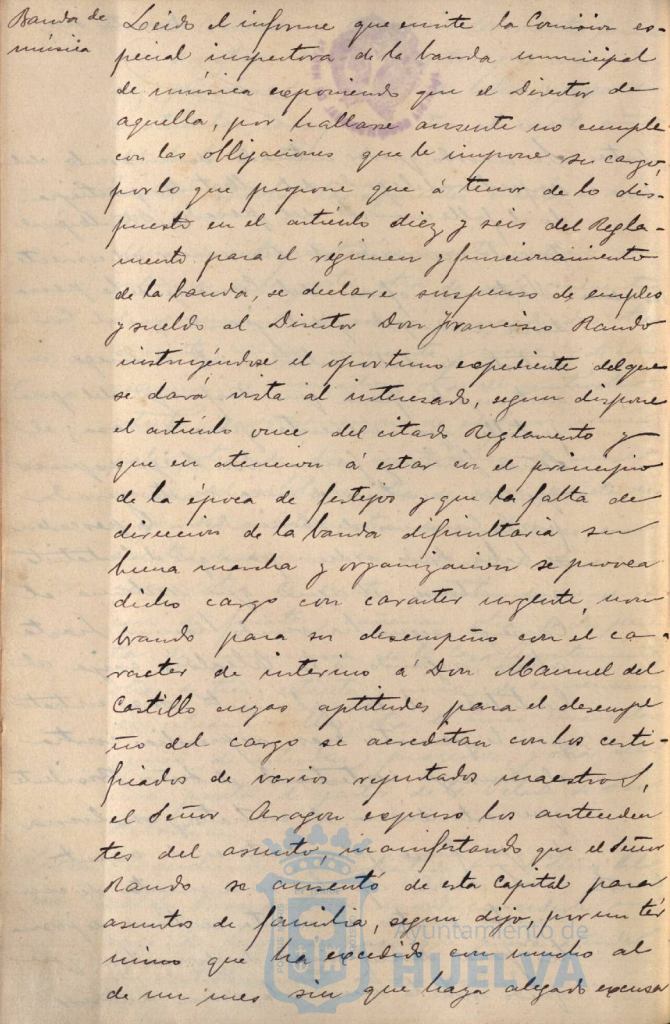 Banda de
música
Leido el informe que emite la Comision es-
pecial inspectora de la banda municipal
de música exponiendo que el Director de
aquella, por hallarse ausente no cumple
con las obligaciones que le impone su cargo,
por lo que propone que á tenor de lo dis-
puesto en el artículo diez y seis del Regla-
mento para el régimen y funcionamiento
de la banda, se declare suspenso de empleo
y sueldo al Director Don Francisco Rando
instruyéndose el oportuno expediente del que
se dará vista al interesado, segun dispone
el artículo once del citado Reglamento y
que en atencion á estar en el principio
de la época de festejos y que la falta de
direccion de la banda dificultaria su
buena marcha y organizacion se provea
dicho cargo con caracter urgente, nom
brando para su desempeño con el ca-
racter de interino á Don Manuel del
Castillo cuyas aptitudes para el desempe
ño del cargo se acreditan con los certi-
ficados de varios reputados maestros,
el Señor Aragon expuso los anteceden
tes del asunto, manifestando que el Señor
Rando se ausentó de esta Capital para
asuntos de familia, segun dijo, por un tér
mino que ha excedido con mucho al
de un mes sin que haya alegado excusa
Ayuntamiento de
HUELVA